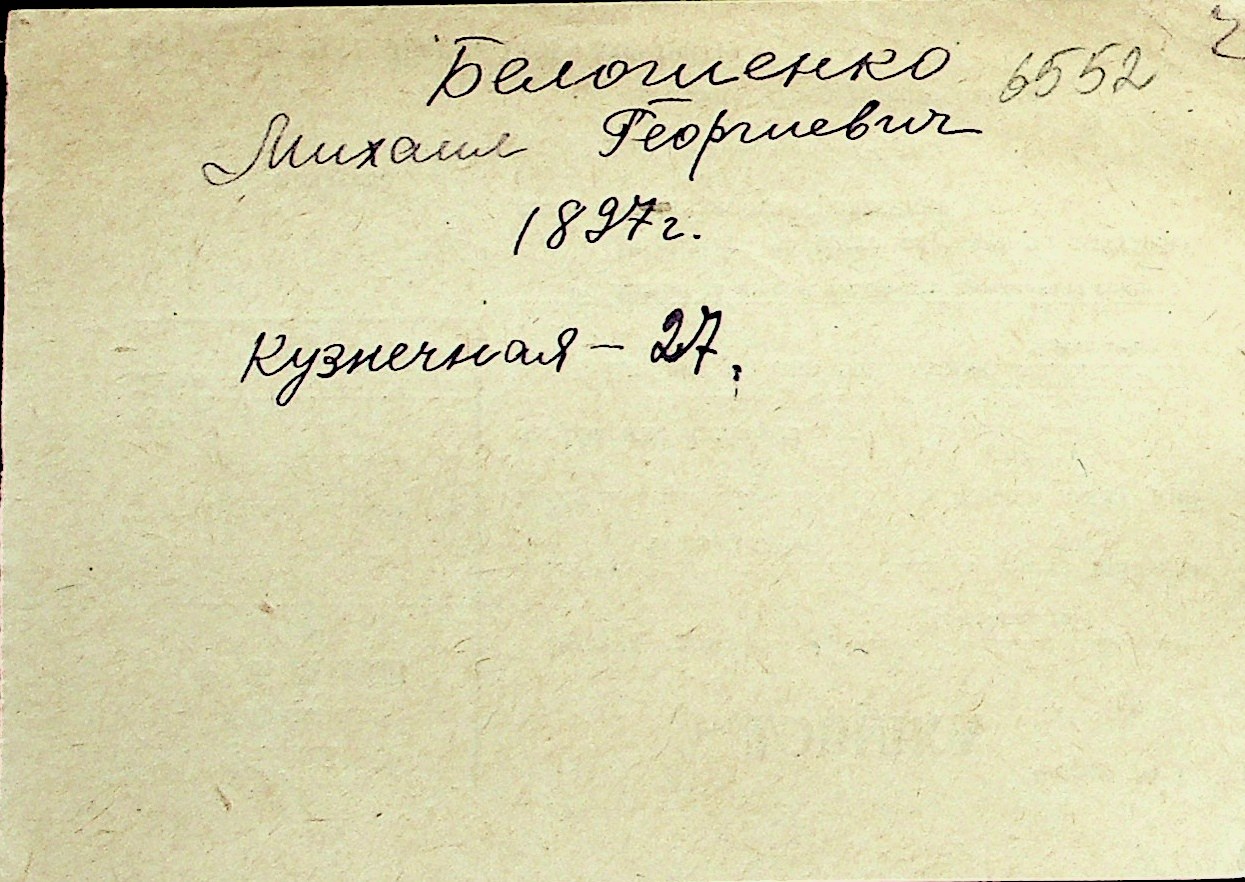 Белошенко 6552
Михаил Георгиевич
1897 г.
Кузнечная - 27,